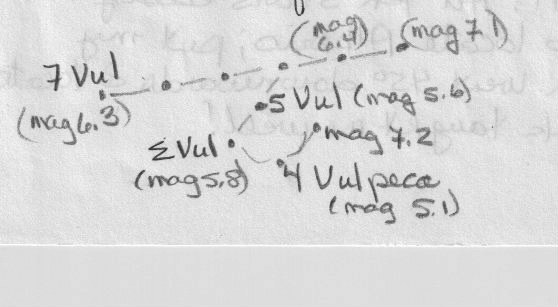 (mag
6.4)
(mag 7.1)
7 Vul
(mag 6.3)
5 Vul (mag 5.6)
mag 7.2
ΣVul
(mag 5.8)
4 Vulpecæ
(mag 5.1)